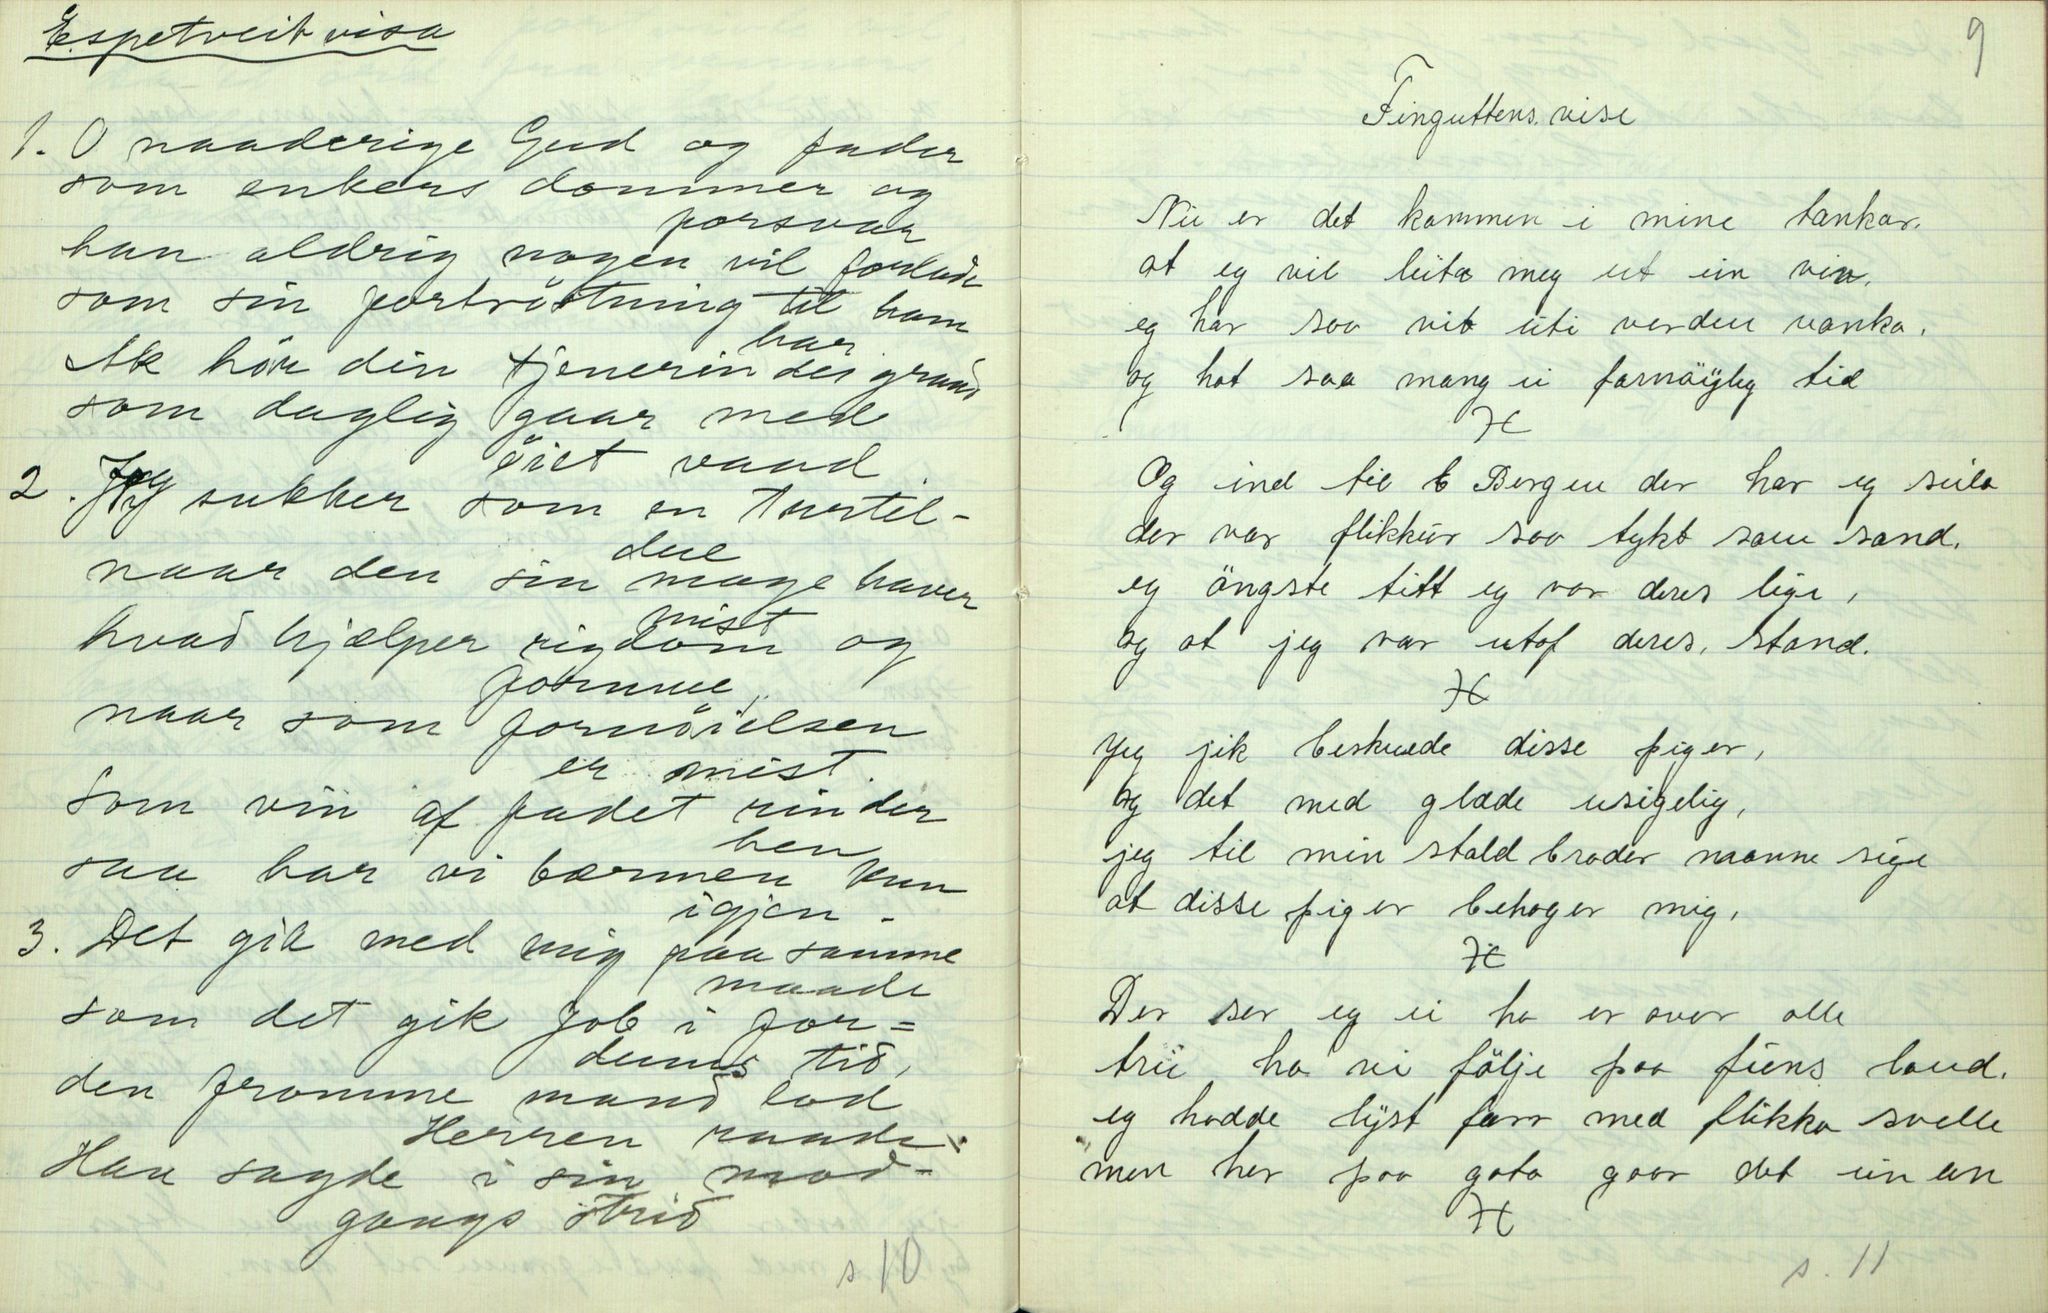 Espetveit visa
1. O naaderige Gud og fader
som enkers dommer og
forsvar
han aldrig nogen vil forlade
som sin fortröstning til ham
har
Ak hör din tjenerindes graad
som daglig gaar med
öiet vaad
2. Jeg sukker som en Turtel-
due
naar den sin mage haver
mist
hvad hjælper rigdom og
formue
naar som fornöielsen
er mist.
Som vin af fadet rinder
hen
saa har vi bærmen kun
igjen -
3. Det gik med mig paa samme
maade
som det gik Job i for=
dums tid,
den fromme mand lod
Herren raade.
Han sagde i sin mod-
gangs strid
s 10
9
Finguttens vise
Nu er det kommen i mine tankar,
at eg vil leita meg ut ein vin,
eg har saa vit uti verden vanka,
og hat saa mang ei fornöiÿlig tid
Og ind til Bergen der har eg seila
der var flikkur saa tykt som sand,
eg ängste titt eg var deres lige,
og at jeg var utaf deres, stand.
Jeg jik beskuede disse piger,
og det med glæde usigelig,
jeg til min stald broder monne sige
at disse piger behager mig,
Der ser eg ei ho er over alle
trii ho vi följe paa fiens land.
eg hadde lÿst farr med flikka svelle
men her paa gata gaar det ein an
s. 11